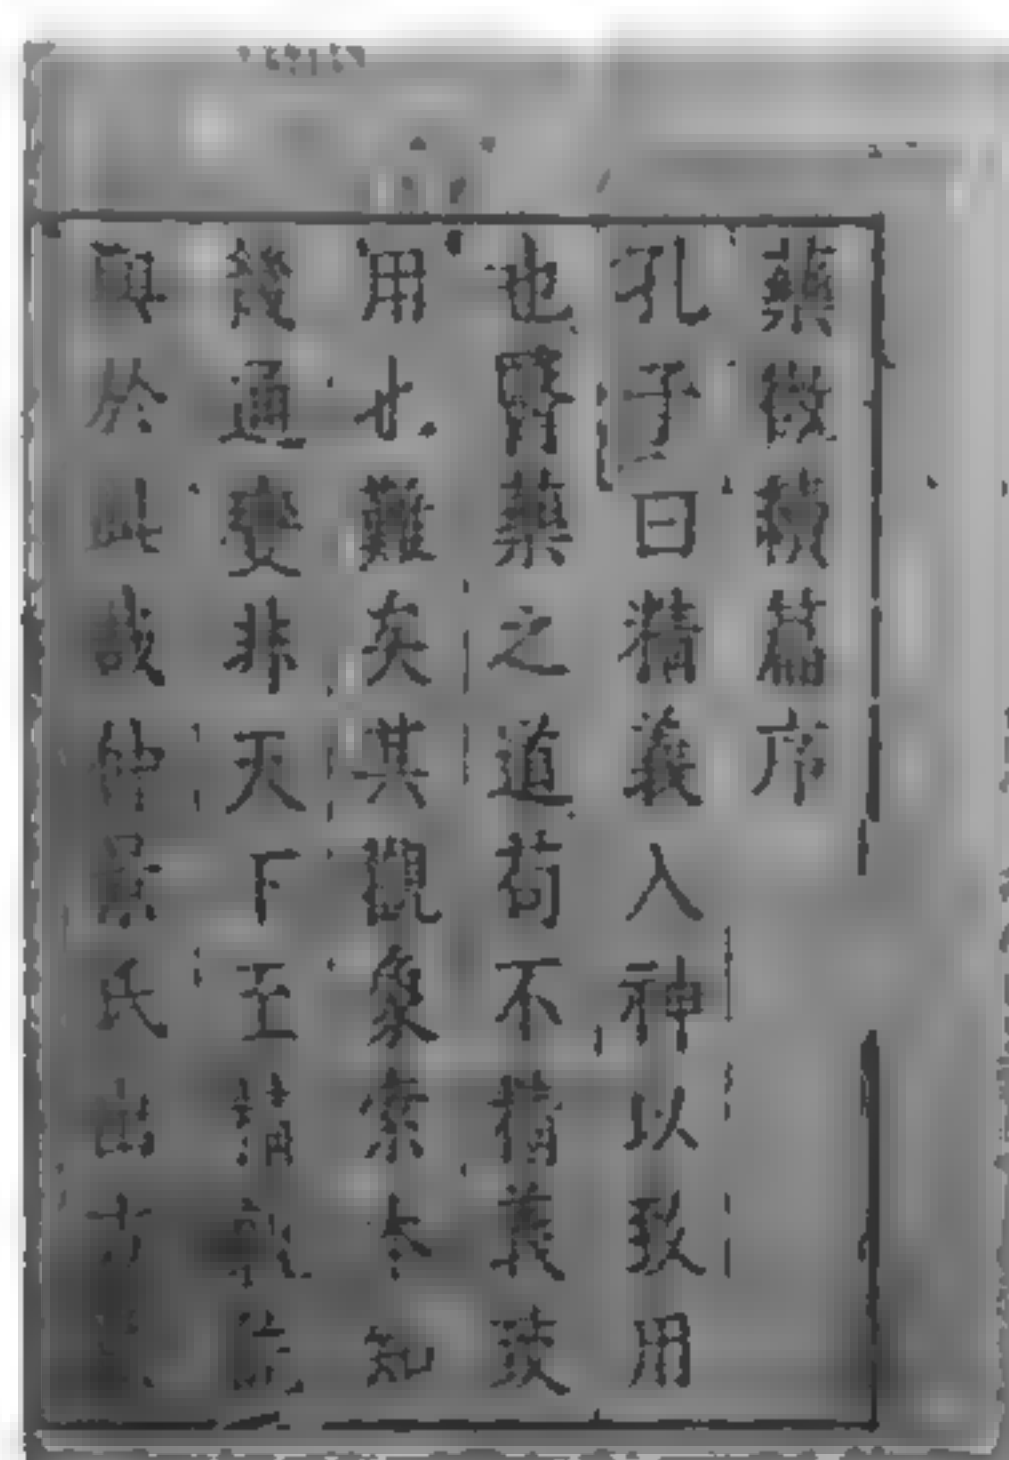 藥徵續篇序
孔子曰精義入神以致用
也醫藥之道苟不精義致
用也難矣其觀象索本知
幾通變非天下至精孰能
與於此哉仲景氏出